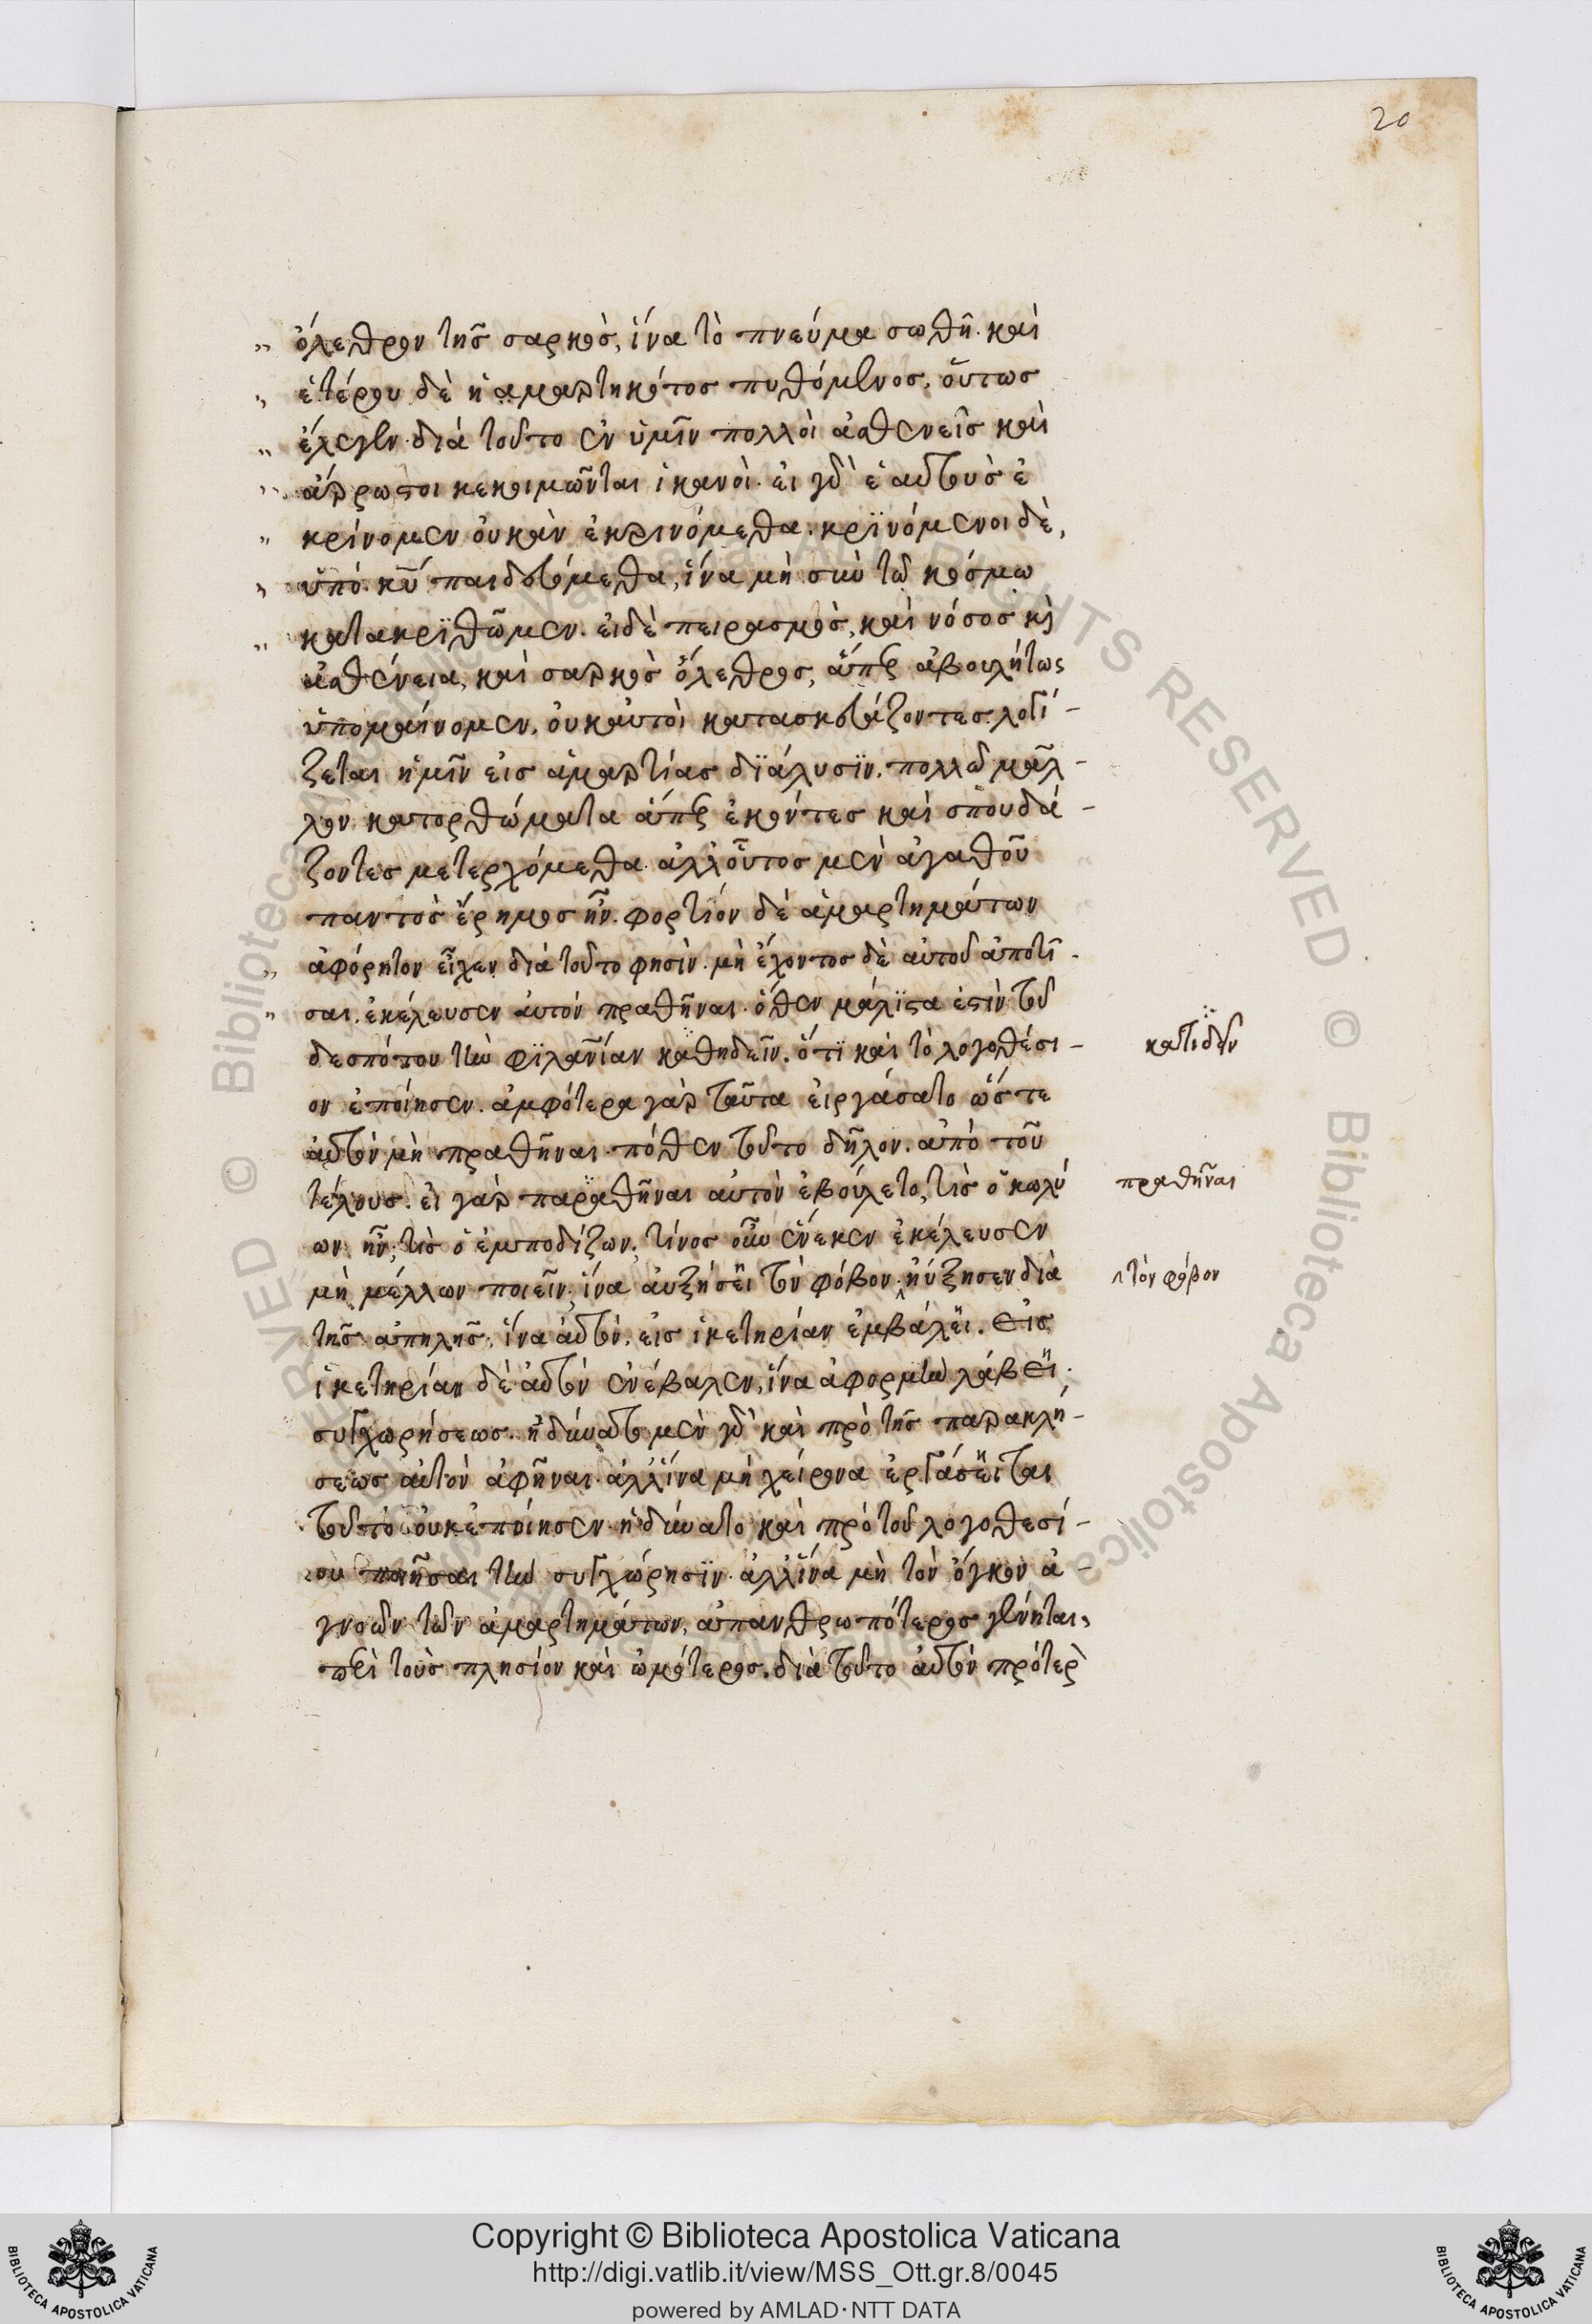 20
„ ὄλεθρον τῆς σαρκὸς, ἵνα τὸ πνεύμα σωθῆ. καὶ
„ ἑτέρου δὲ ἡμαρτηκότος πυθόμενος, οὕτως
„ ἔλεγεν. διὰ τοῦτο ἐν ὑμῖν πολλοὶ ἀσθενεῖς καὶ
„ ἄρρωστοι κεκοιμῶνται ἱκανοὶ. εἰ γὰρ ἑαυτοὺς ἐ
„ κρίνομεν οὐκὰν ἐκρινόμεθα. κρϊνόμενοι δὲ,
„ ὑπὸ κυ παιδευόμεθα, ἵνα μὴ σὺν τῶ κόσμω
„ κατακρϊθῶμεν. εἰδὲ πειρασμὸς, καὶ νόσος κὶ
ἀσθένεια, καὶ σαρκὸς ὄλεθρος, ἅπερ ἀβουλήτως
ὑπομαίνομεν, οὐκαὐτοὶ κατασκευάζοντες. λογί-
ζεται ἡμῖν εἰς ἁμαρτίας δϊάλυσϊν. πολλῶ μᾶλ-
λον κατορθώματα ἅπερ ἑκόντες καὶ σπουδά-
ζοντες μετερχόμεθα. ἀλλοὗτος μὲν ἀγαθοῦ
παντὸς ἔρημος ἦν. φορτίον δὲ ἁμαρτημάτων
„ ἀφόρητον εἶχεν διὰ τοῦτο φησὶν. μὴ ἔχοντος δὲ αὐτοῦ ἀποτῖ-
„ σαι. ἐκέλευσεν αὐτόν πραθῆναι. ὅθεν μάλϊστα ἐστὶν τοῦ
δεσπότου τὴν φϊλανίαν καθηδεῖν. ὅτϊ καὶ τὸ λογοθέσι-
ον ἐποίησεν. ἀμφότερα γὰρ ταῦτα εἰργάσατο ὥστε
αὐτὸν μὴ πραθῆναι. πόθεν τοῦτο δῆλον. ἀπὸ τοῦ
τέλους. εἰ γὰρ παραθῆναι αὐτὸν ἐβούλετο, τίς ὁ κωλύ
ων ἦν; τὶς ὁ ἐμποδίζων; τίνος οὖν ἕνεκεν ἐκέλευσεν
μὴ μέλλων ποιεῖν; ἵνα αὐξήσει τὸν φόβον. ηὔξησεν διὰ
τῆς ἀπηλῆς, ἵνα αὐτὸν, εἰς ἱκετηρίαν ἐμβάλει. εἰς
ἱκετηρίαν δὲ αὐτὸν ἐνέβαλεν, ἵνα ἀφορμὴν λάβει
συγχωρήσεως. ἠδύνατο μὲν γὰρ καὶ πρὸ τῆς παρακλη-
σεως αὐτὸν ἀφῆναι. ἀλλἵνα μὴ χείρονα ἐργάσηται
τοῦτο οὐκἐποίησεν. ἠδύνατο καὶ πρὸ τοῦ λογοθεσί-
ου ποιῆσαι τὴν συγχώρησϊν. ἀλλἵνα μὴ τὸν ὄγκον ἀ-
γνοῶν τῶν ἁμαρτημάτων, ἀπανθρωπότερος γένηται,
περὶ τοὺς πλησίον καὶ ὠμότερος. διὰ τοῦτο αὐτὸν πρότερ
κατιδεῖν
πραθῆναι
τὸν φόβον
Copyright © Biblioteca Apostolica Vaticana
http://digi.vatlib.it/view/MSS_Ott.gr.8/0045
powered by AMLAD·NTT DATA
BIBLIOTECA APOSTOLICA VATICANA
BIBLIOTECA APOSTOLICA VATICANA